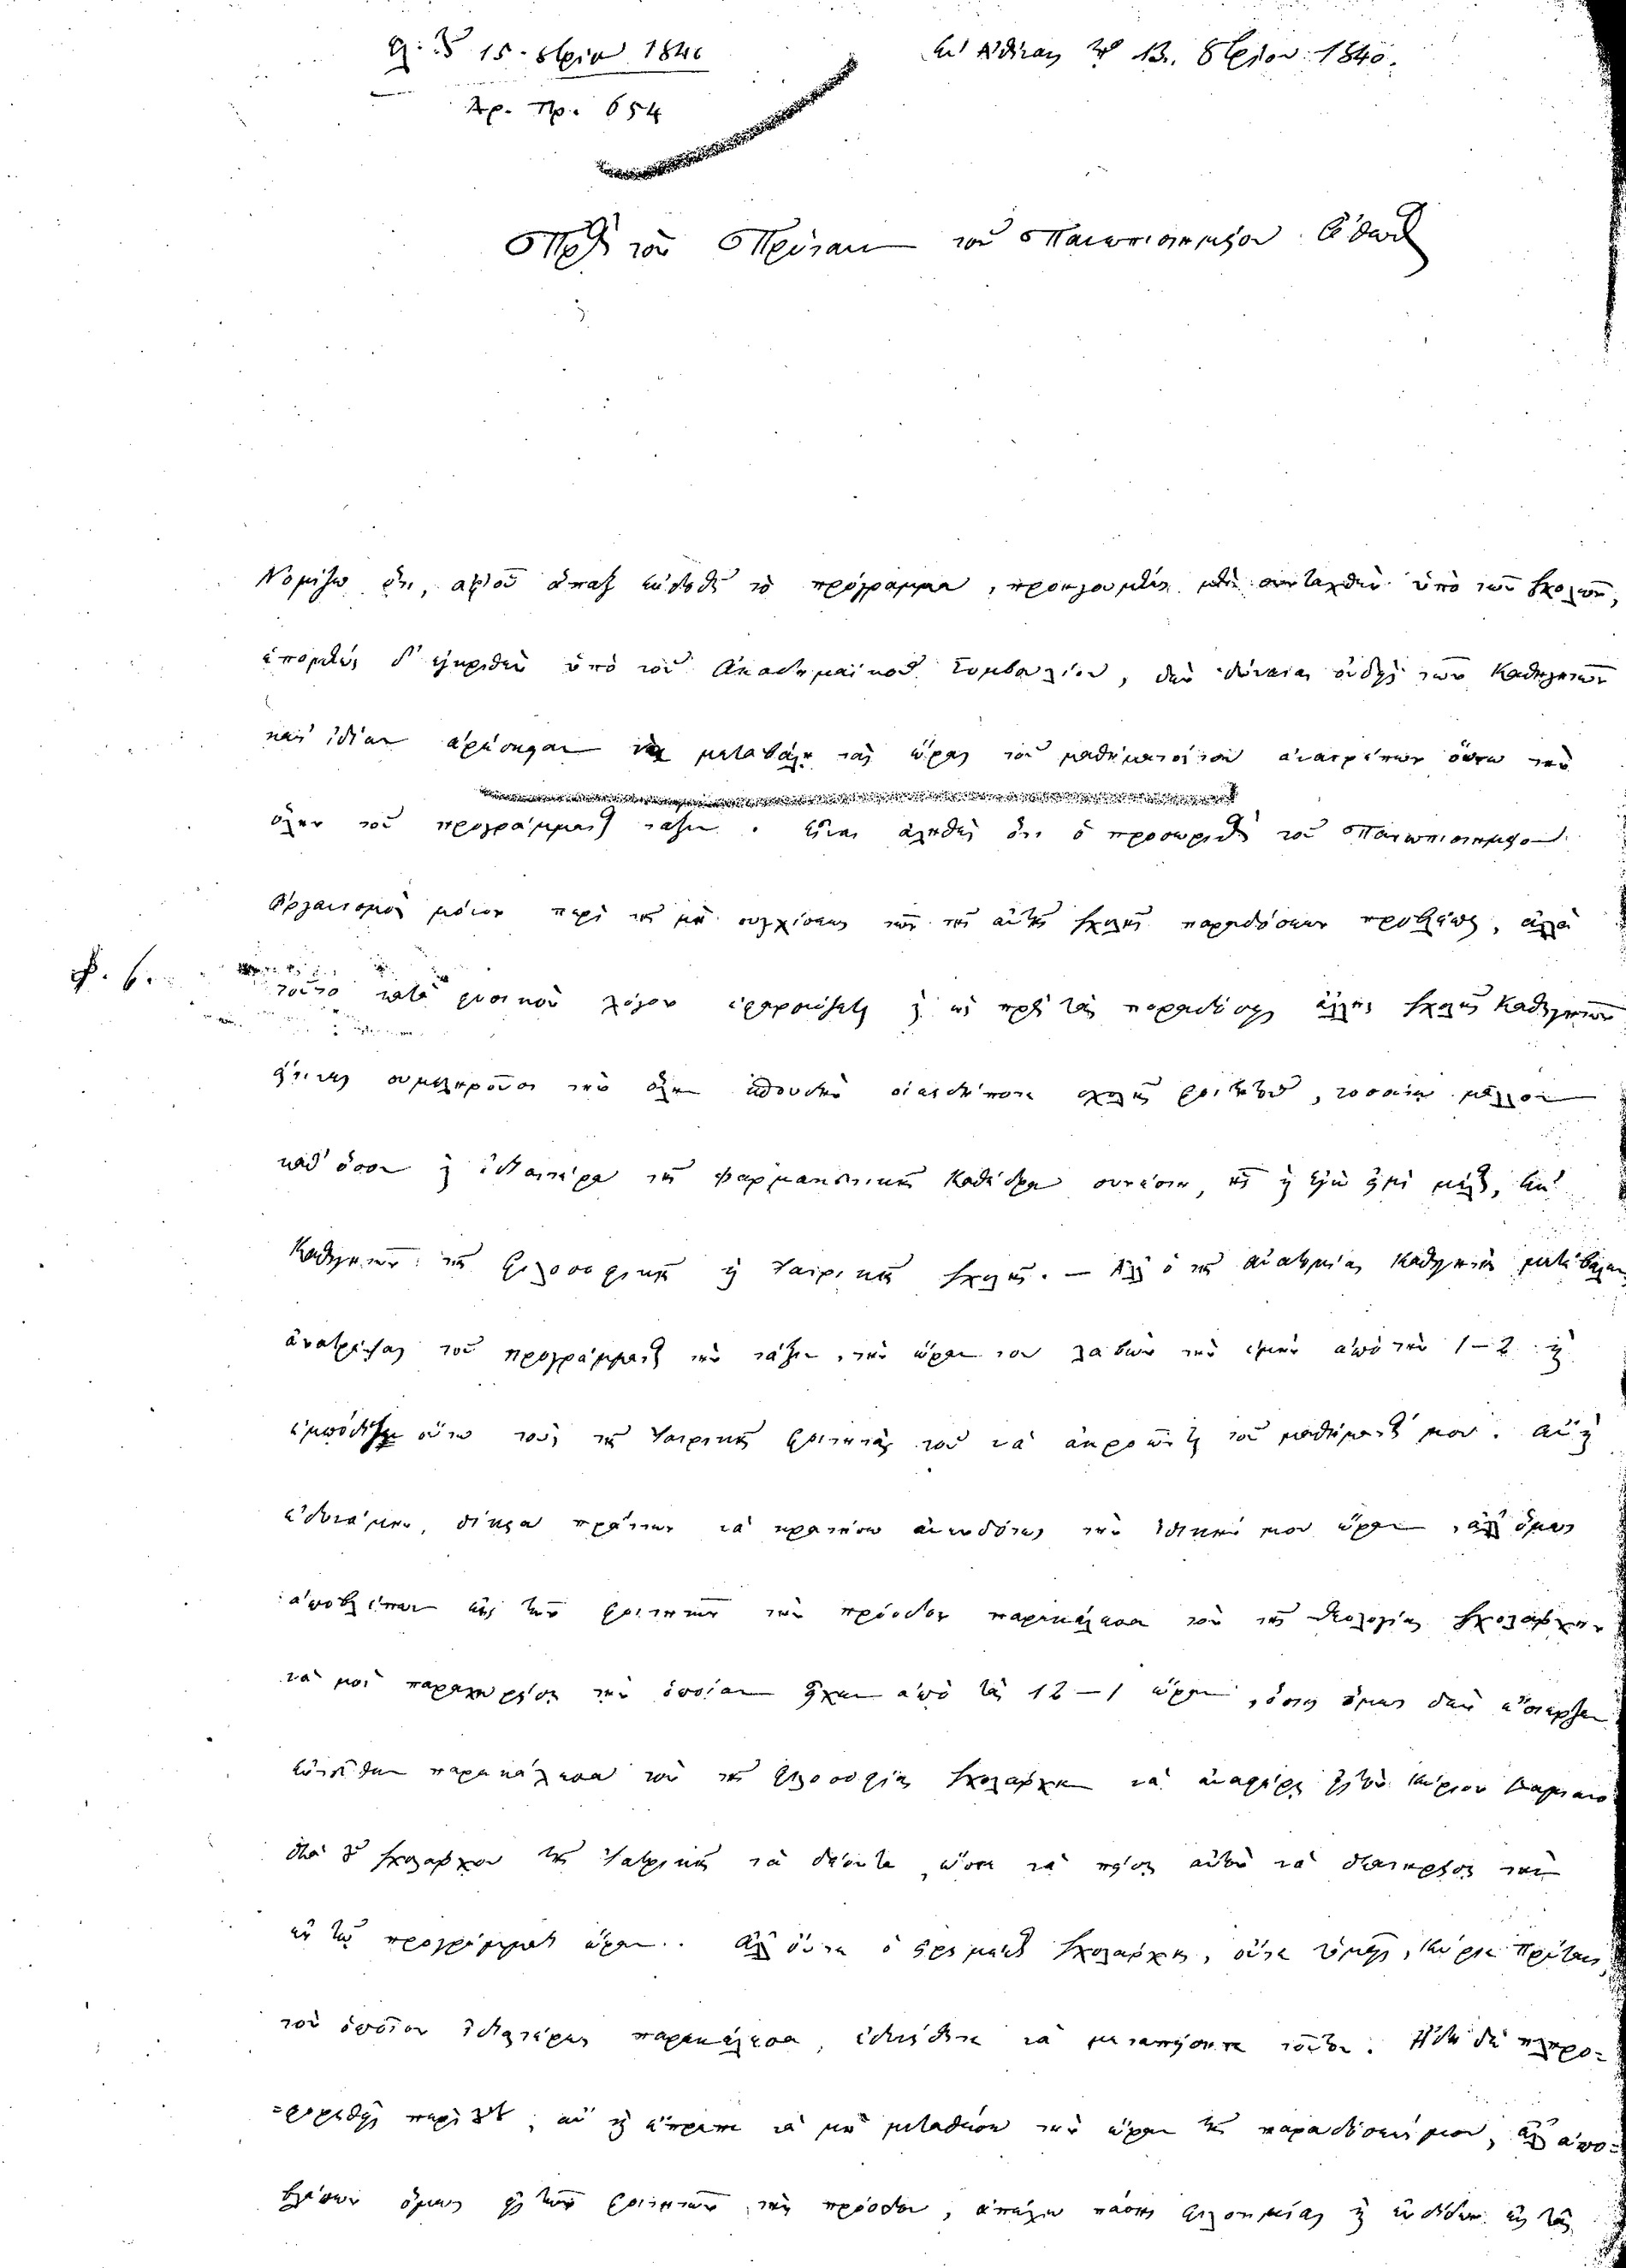 15. 8βρίου 1840
Ἀρ. Πρ. 654
Ἐν Ἀθήναις τῇ 13. 8βρίου 1840.
Πρὸς τὸν Πρύτανιν τοῦ Πανεπιστημίου Ὄθωνος
Νομίζω ὅτι, ἀφοῦ ἅπαξ ἐκδοθῇ τὸ πρόγραμμα, προηγουμένως μὲν συνταχθὲν ὑπὸ τῶν Σχολῶν,
ἑπομένως δ' ἐγκριθὲν ὑπὸ τοῦ Ἀκαδημαϊκοῦ Συμβουλίου, δὲν δύναται οὐδεὶς τῶν Καθηγητῶν
κατ' ἰδίαν ἀρέσκειαν νὰ μεταβάλῃ τὰς ὥρας τοῦ μαθήματός του ἀνατρέπων οὕτω τὴν
ὅλην τοῦ προγράμματος τάξιν. Εἶναι ἀληθὲς ὅτι ὁ προσωρινὸς τοῦ Πανεπιστημίου
Ὀργανισμὸς μόνον περὶ τῆς μὴ συγχύσεως τῶν τῆς αὐτῆς Σχολῆς παραδόσεων προβλέπει, ἀλλὰ
τοῦτο κατὰ φυσικὸν λόγον ἐφαρμόζεται καὶ ὡς πρὸς τὰς παραδόσεις ἄλλης Σχολῆς Καθηγητῶν
οἵτινες συμπληροῦσι τὴν ὅλην σπουδὴν οἱασδήποτε σχολῆς φοιτητοῦ, τοσούτῳ μᾶλλον
καθ' ὅσον ἡ ἰδιαιτέρα τῆς Φαρμακευτικῆς Καθέδρα συνέστη, τῆς ὁποίας καὶ ἐγὼ εἰμὶ μέλος, ἐκ
Καθηγητῶν τῆς Φιλοσοφικῆς καὶ Ἰατρικῆς Σχολῆς. — Ἀλλ' ὁ τῆς ἀνατομίας Καθηγητὴς μετέβαλεν
ἀνατρέψας τοῦ προγράμματος τὴν τάξιν, τὴν ὥραν του λαβὼν τὴν ἐμὴν ἀπὸ τὴν 1–2 καὶ
ἐμπόδισεν οὕτω τοὺς τῆς Ἰατρικῆς φοιτητὰς τοῦ νὰ ἀκροασθῶσι τοῦ μαθήματός μου. Ἂν καὶ
ἐδυνάμην, δίκαια πράττων νὰ κρατήσω ἀνενδότως τὴν ἰδικήν μου ὥραν, ἀλλ' ὅμως
ἀποβλέπων εἰς τῶν φοιτητῶν τὴν πρόοδον παρεκάλεσα τὸν τῆς Θεολογίας Σχολάρχην
νὰ μοὶ παραχωρήσῃ τὴν ὁποίαν εἶχεν ἀπὸ τὰς 12–1 ὥραν, ὅστις ὅμως δὲν ἔστερξεν
ἐντεῦθεν παρεκάλεσα τὸν τῆς Φιλοσοφίας Σχολάρχην νὰ ἀναφέρῃ εἰς τὸν Κύριον
διὰ τοῦ Σχολάρχου τῆς Ἰατρικῆς τὰ δέοντα, ὥστε νὰ πείσῃ αὐτὸν νὰ διατηρήσῃ τὴν
ἐν τῷ προγράμματι ὥραν. Ἀλλ' οὔτε ὁ Σχολάρχης, οὔτε ὑμεῖς, Κύριε Πρύτανι,
τὸν ὁποῖον ἰδιαιτέρως παρεκάλεσα, ἐδυνήθητε νὰ μεταπείσητε τοῦτον. Ἤδη δὲ πληρο-
=φορηθεὶς περὶ τούτου, ἂν καὶ ἔπρεπε νὰ μὴ μεταθέσω τὴν ὥραν τῆς παραδόσεώς μου, ἀλλ' ἀπο-
βλέπων ὅμως εἰς τῶν φοιτητῶν τὴν πρόοδον, ἀπέχων πάσης φιλονεικίας καὶ ἐνδίδων εἰς τὰς